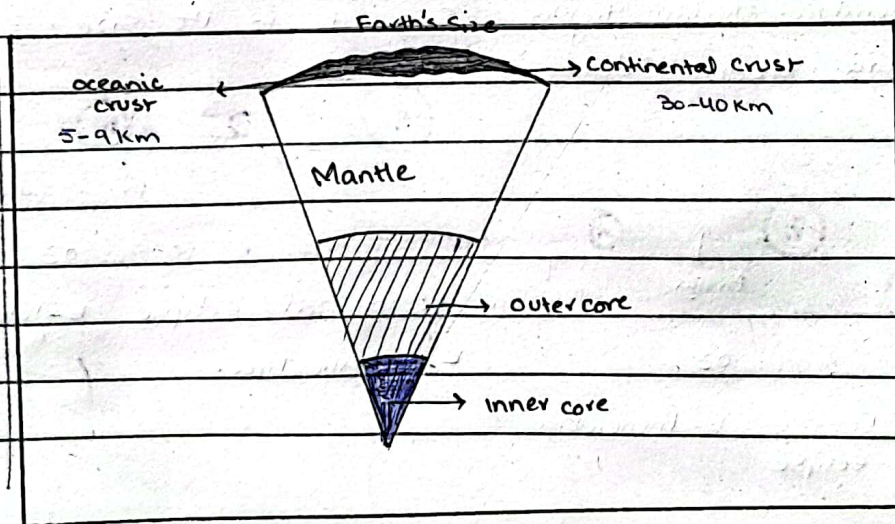 Earth's Size
oceanic
crust
5-9 Km
continental crust
30-40 Km
Mantle
outer core
inner core